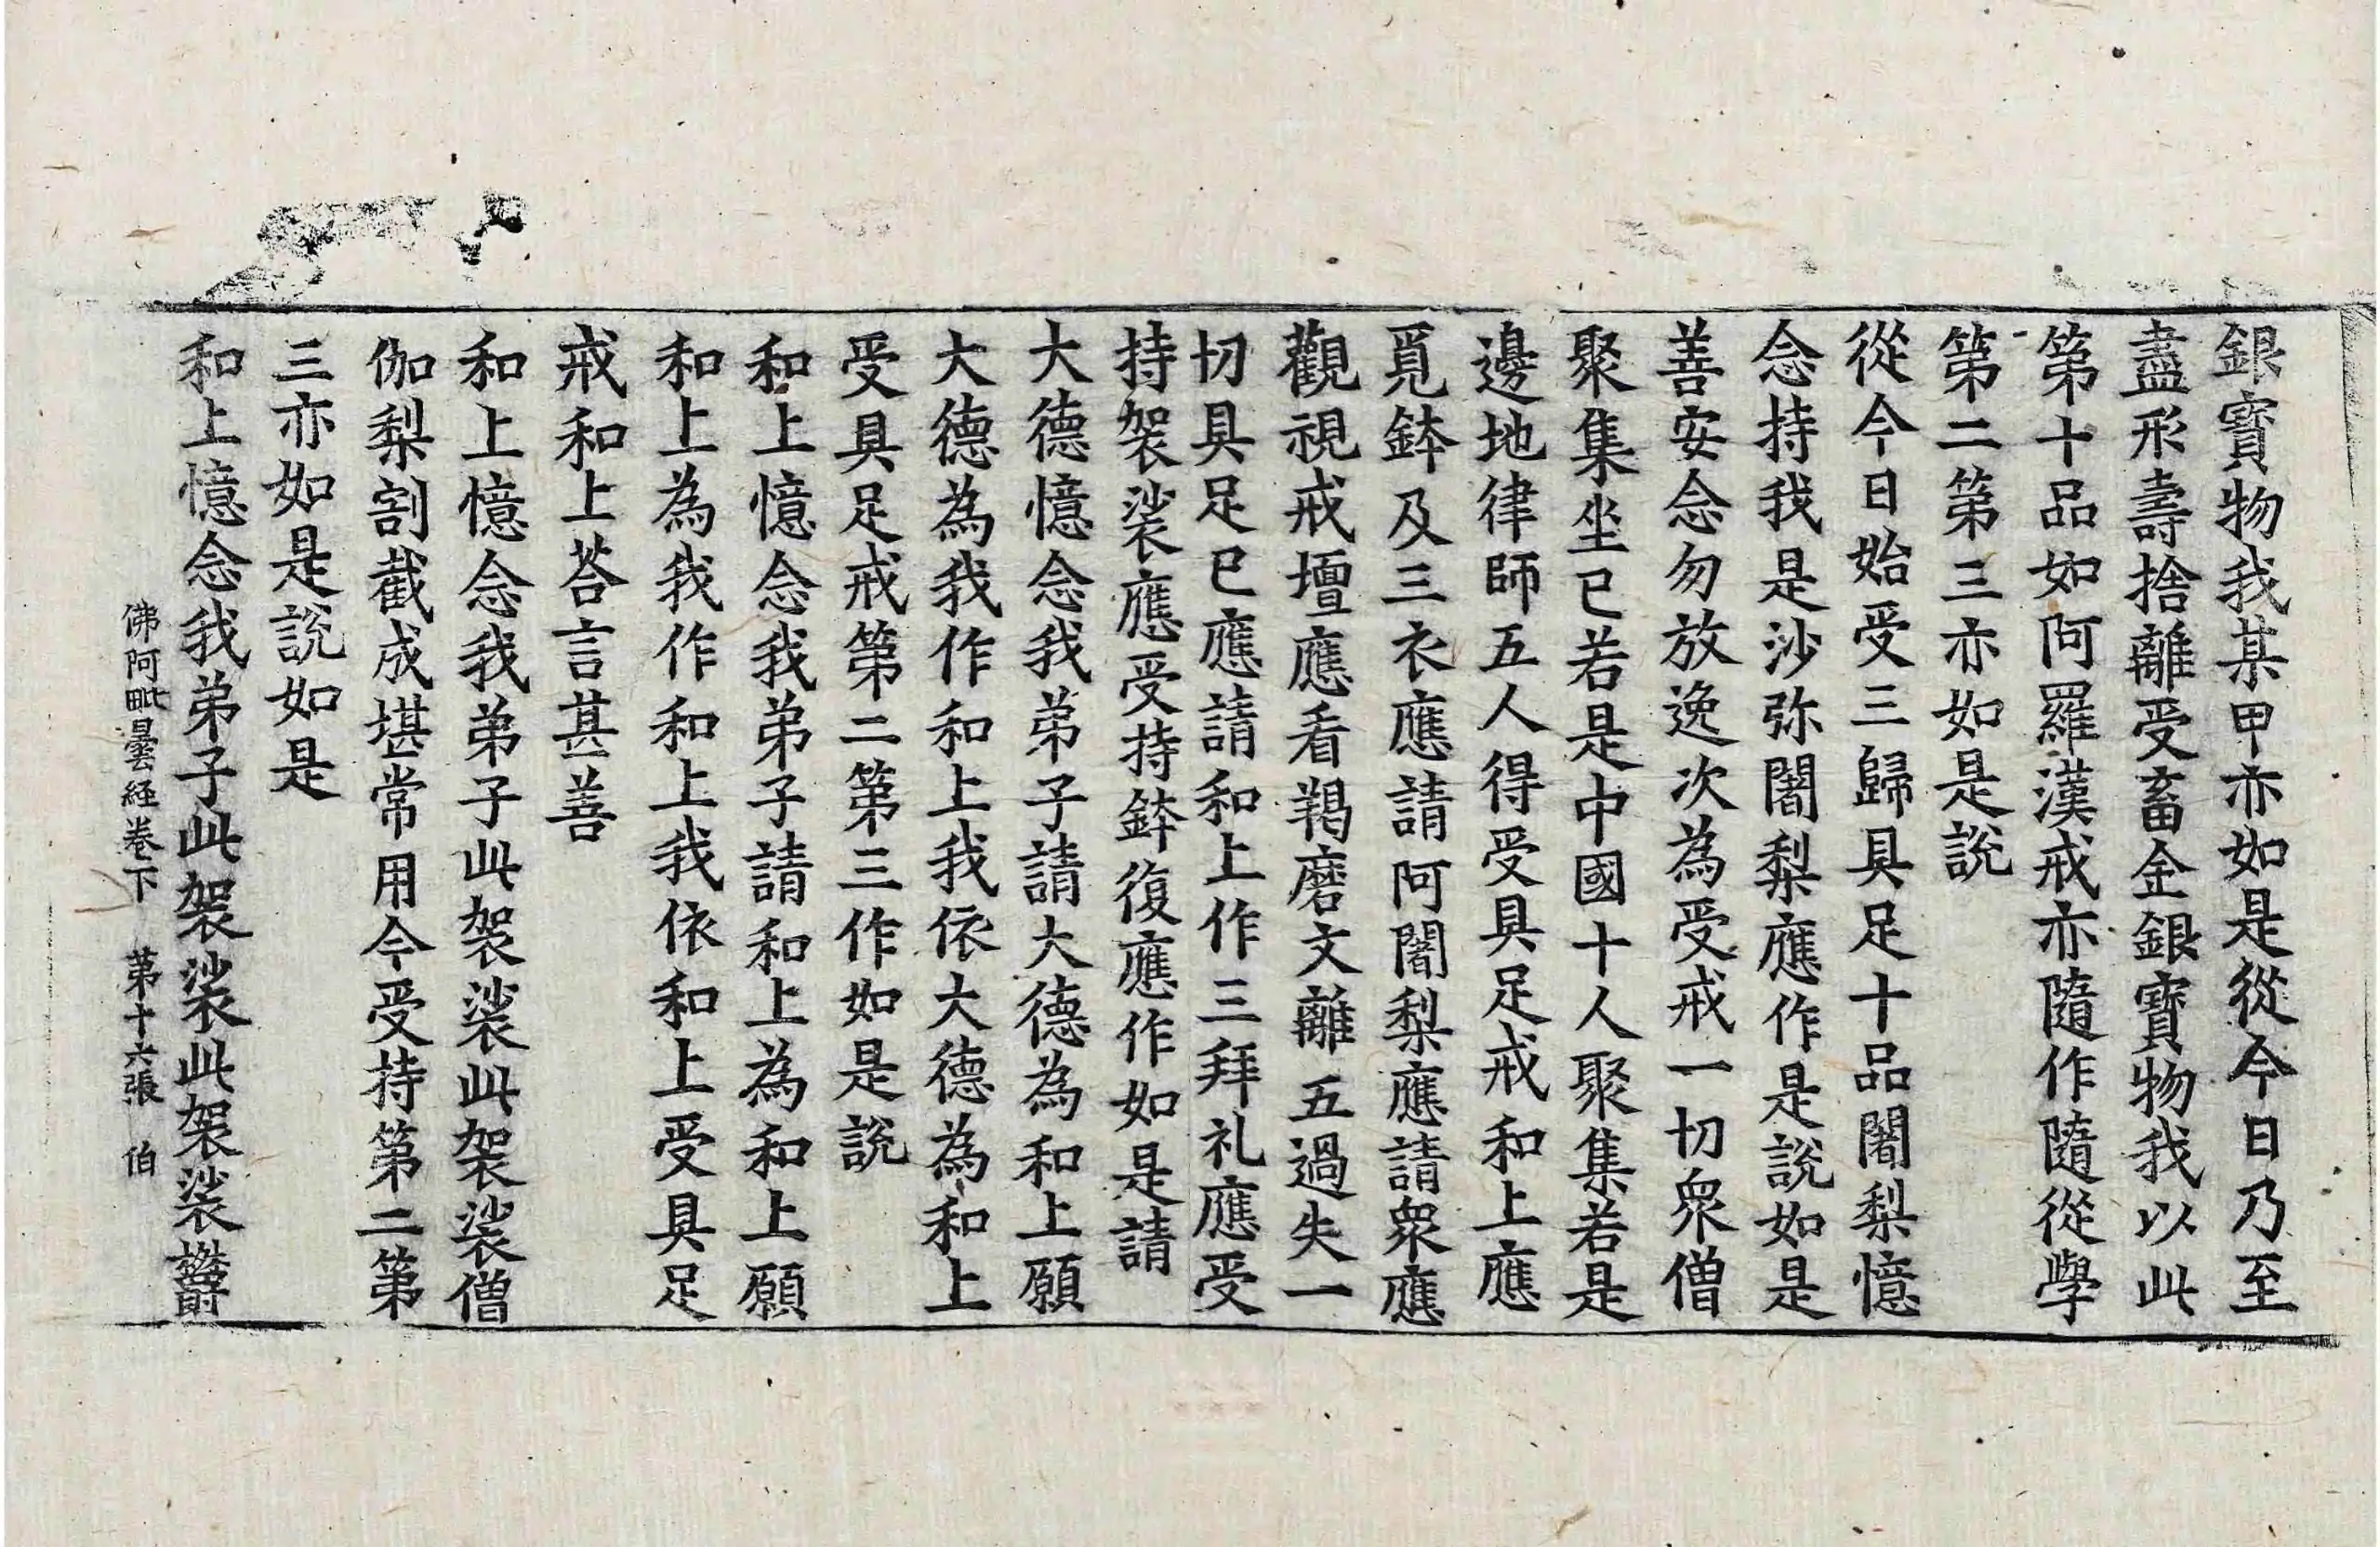 銀寶物我某甲亦如是從今日乃至
盡形壽捨離受畜金銀寶物我以此
第十品如阿羅漢戒亦隨作隨從學
第二第三亦如是說
從今日始受三歸具足十品闍梨憶
念持我是沙弥闍梨應作是說如是
善安念勿放逸次為受戒一切眾僧
聚集坐已若是中國十人聚集若是
邊地律師五人得受具足戒和上應
覓鉢及三衣應請阿闍梨應請眾應
觀視戒壇應看羯磨文離五過失一
切具足已應請和上作三拜礼應受
持袈裟應受持鉢復應作如是請
大德憶念我弟子請大德為和上願
大德為我作和上我依大德為和上
受具足戒第二第三作如是說
和上憶念我弟子請和上為和上願
和上為我作和上我依和上受具足
戒和上荅言甚善
和上憶念我弟子此袈裟此袈裟僧
伽梨割截成堪常用今受持第二第
三亦如是說如是
和上憶念我弟子此袈裟此袈裟欝
佛阿毗曇経卷下 第十六張 伯